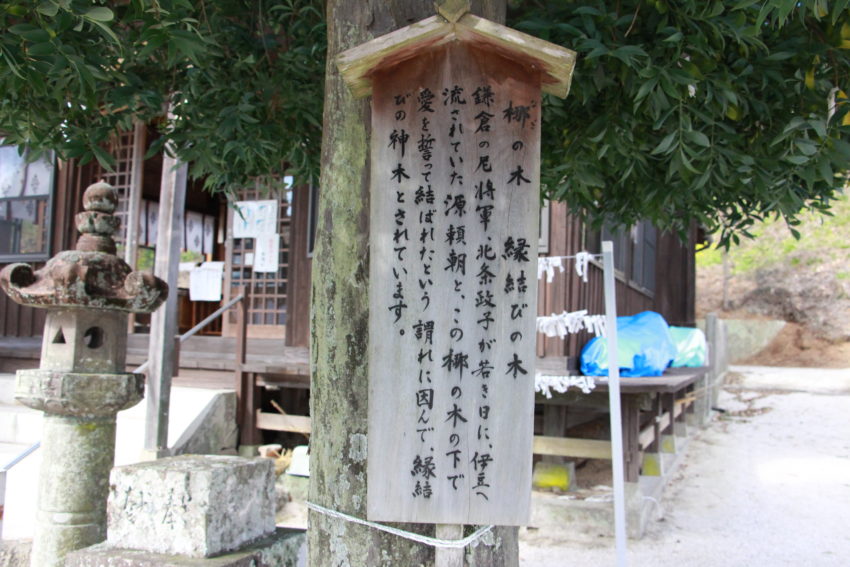 梛の木　縁結びの木
なぎ
鎌倉の尼将軍 北条政子が若き日に、伊豆へ
流されていた源頼朝と、この梛の木の下で
愛を誓って結ばれたという謂れに因んで、縁結
びの神木とされています。